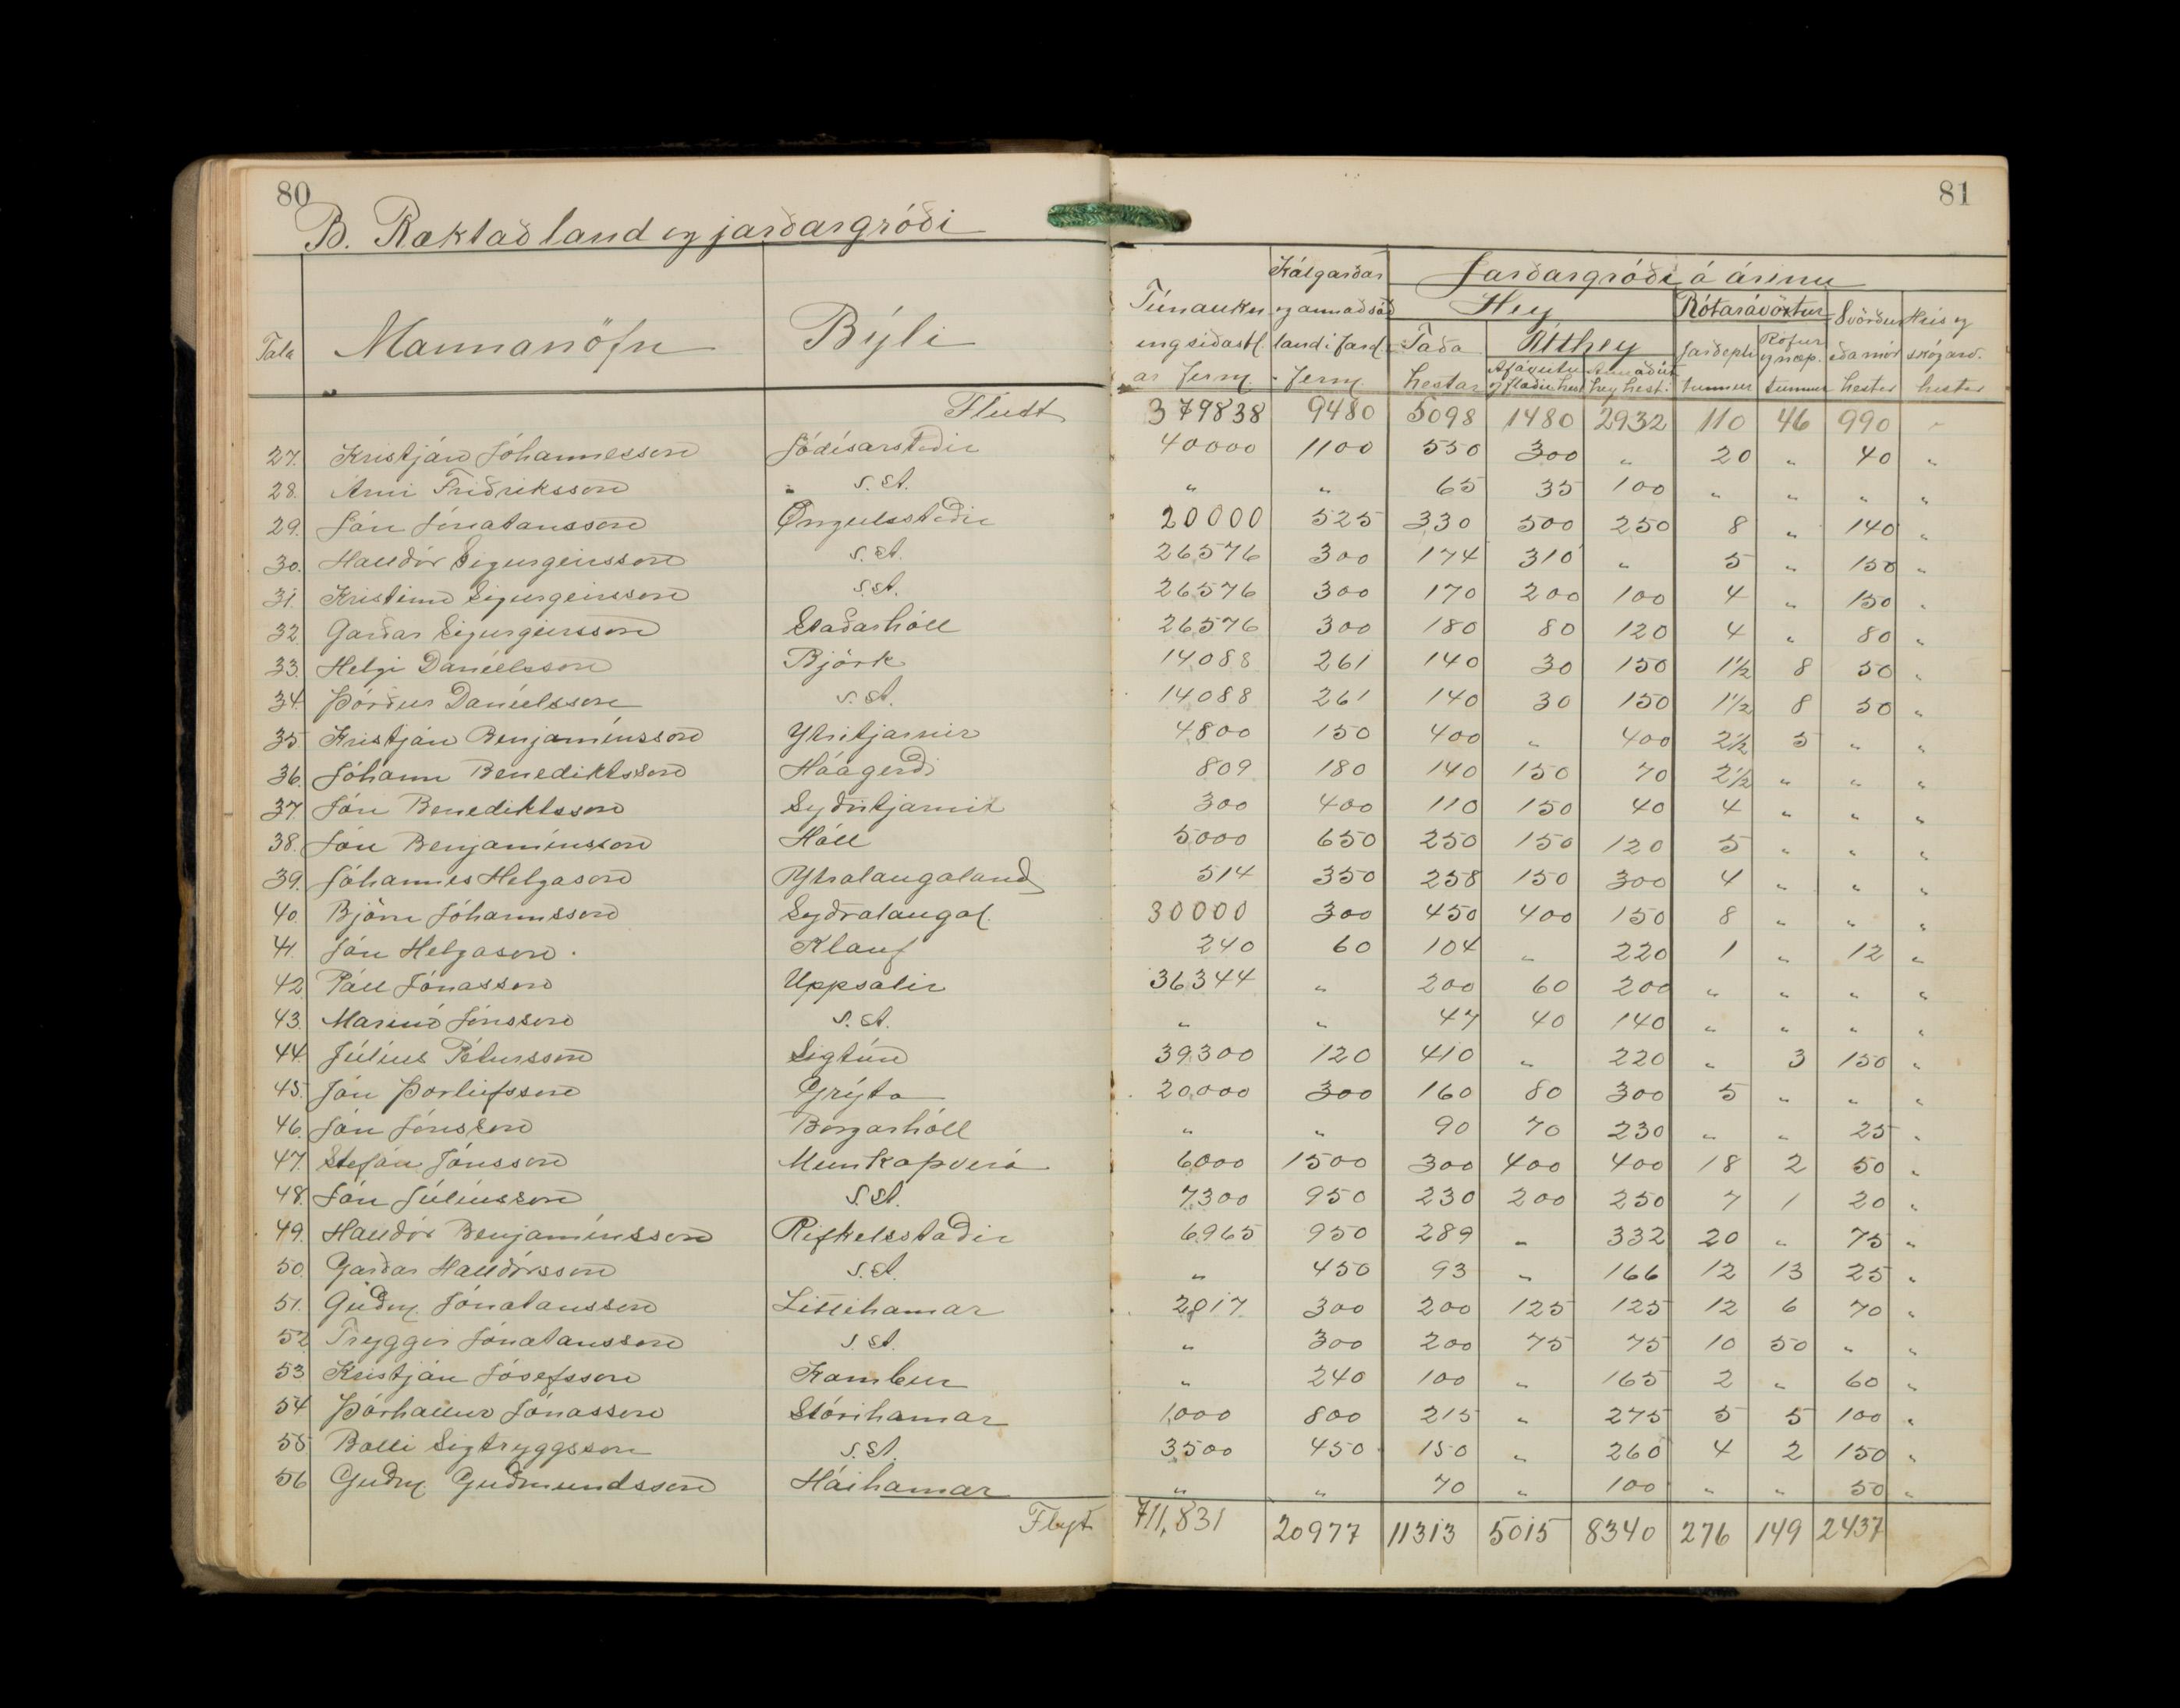 80
81
B. Ræktað land og jarðargróði
Tala Mannanöfn Býli Túnauku ing síðastl. ár Ferm. Kálgarðar og annað sáð land í fard. Ferm. Jarðargróði á árinu
Hey Rótarávöxtur Svörður eða mór hestar Hrís og skógarv. hestar
Taða hestar Úthey Jarðepli tunnur Rófur og næp. tunnur
Af áveitu og flæðu hest Annað út hey hest.
Flutt 379838 9480 5098 1480 2932 110 46 990 -
27. Kristján Jóhannesson Jódísarstaðir 40000 1100 550 300 " 20 " 40 "
28. Árni Friðriksson s. st. " " 65 35 100 " " " "
29. Jón Jónatansson Öngulsstaðir 20000 525 330 500 250 8 " 140 "
30. Halldór Sigurgeirsson s. st. 26576 300 174 310 " 5 " 150 "
31. Kristinn Sigurgeirsson s. st. 26576 300 170 200 100 4 " 150 "
32. Garðar Sigurgeirsson Staðarhóll 26576 300 180 80 120 4 " 80 "
33. Helgi Daníelsson Björk 14088 261 140 30 150 1½ 8 50 "
34. Þórður Daníelsson s. st. 14088 261 140 30 150 1½ 8 50 "
35 Kristján Benjamínsson Ytritjarnir 4800 150 400 " 400 2½ 5 " "
36. Jóhann Benediktsson Háagerði 809 180 140 150 70 2½ " " "
37. Jón Benediktsson Syðritjarnir 300 400 110 150 40 4 " " "
38. Jón Benjamínsson Hóll 5000 650 250 150 120 5 " " "
39. Jóhannes Helgason Ytralaugaland 514 350 258 150 300 4 " " "
40. Björn Jóhannsson Syðralaugal. 30000 300 450 400 150 8 " " "
41. Jón Helgason Klauf 240 60 104 " 220 1 " 12 "
42. Páll Jónasson Uppsalir 36344 " 200 60 200 " " " "
43. Marinó Jónsson s. st. " " 47 40 140 " " " "
44. Júlíus Pétursson Sigtún 39300 120 410 " 220 " 3 150 "
45. Jón Þorleifsson Grýta 20000 300 160 80 300 5 " " "
46. Jón Jónsson Borgarhóll " " 90 70 230 " " 25 "
47. Stefán Jónsson Munkaþverá 6000 1500 300 400 400 18 2 50 "
48. Jón Júlíusson s. st. 7300 950 230 200 250 7 1 20 "
49. Halldór Benjamínsson Rifkelsstaðir 6965 950 289 " 332 20 " 75 "
50. Garðar Halldórsson s. st. " 450 93 " 166 12 13 25 "
51. Guðm. Jónatansson Litlihamar 2817 300 200 125 125 12 6 70 "
52 Tryggvi Jónatansson s. st. " 300 200 75 75 10 50 " "
53. Kristján Jósefsson Kambur " 240 100 " 165 2 " 60 "
54 Þórhallur Jónasson Stórihamar 1000 800 215 " 275 5 5 100 "
55 Balli Sigtryggsson s. st. 3500 450 150 " 260 4 2 150 "
56 Guðm. Guðmundsson Háihamar " " 70 " 100 " " 50 "
Flyt 711,831 20977 11313 5015 8340 276 149 2437